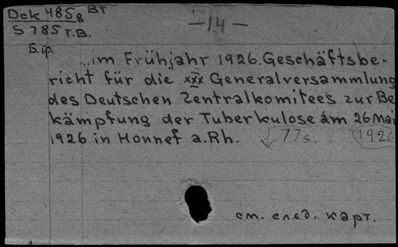 Dck 485 8 BT
S 785 T.B.
— 14 —
Б.гр.
...im Frühjahr 1926. Geschäftsbe-
richt für die XXX Generalversammlung
des Deutschen Zentralkomitees zur Be
kämpfung der Tuberkulose am 26 Mai
1926 in Honnef a.Rh. 77s. 1926
см. след. карт.